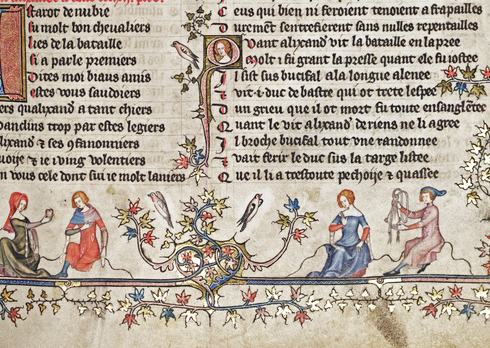 starot de nubie
fu molt bon cheualiers
lies de la bataille
si a parle premiers
Dites moi biaus amis
estes vous saudoiers
ers qualixand a tant chiers
andins trop par estes legiers
lixand & ses
uoie & ie i ving volentiers
n vous cele dont sui ie molt laniers
C eus qui bien ni fierent tenoient a frapailles
D urement sentrefierent sans nulles repentailles
Q vant alixand vit la bataille en la pree
M olt i fu grant la presse quant ele fu iostee
I l sist sus bucifal a la longue alenee
vit .i. duc de bastre qui ot trete lespee
D un grieu que il ot mort fu toute ensanglentee
Q uant le vit alixand de riens ne li agree
I l broche bucifal tout vne randonnee
V ait ferir le duc sus la targe listee
Q ue il li a trestoute pechoiie & quassee